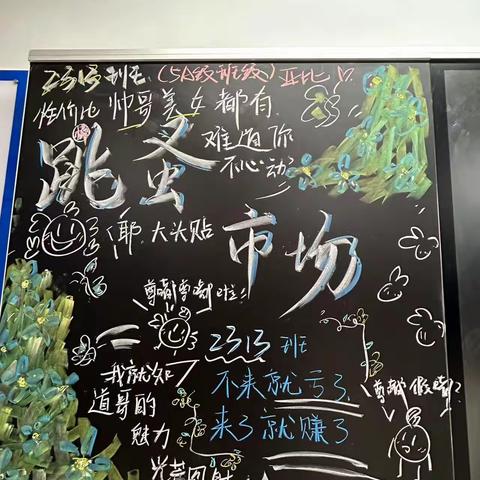 2313班（5A级班级）
性价比 帅哥美女都有
难道你
不心动？
跳蚤
市场
耶 大头贴
尊嘟尊嘟啦！
2313班
不来就亏了
来了就赚了
我就知
道哥的
魅力
尊嘟假嘟？